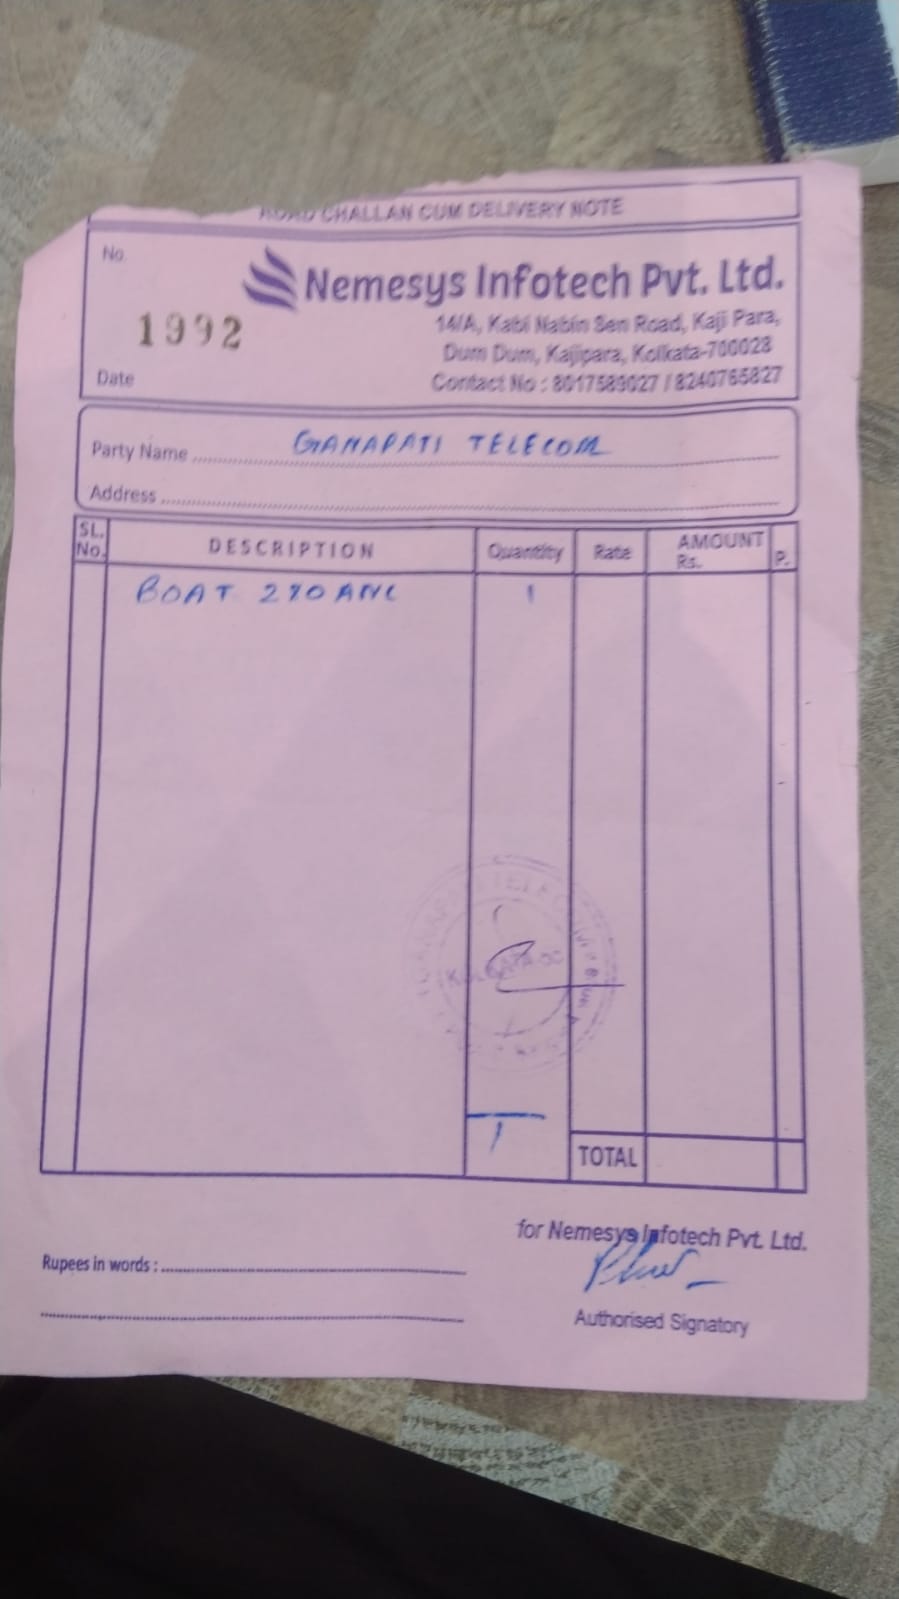 ROAD CHALLAN CUM DELIVERY NOTE
No.
1992
Date
Nemesys Infotech Pvt. Ltd.
14/A, Kabi Nabin Sen Road, Kaji Para,
Dum Dum, Kajipara, Kolkata-700028
Contact No : 8017589027 / 8240765827
Party Name GANAPATI TELECOM
Address
SL. No. DESCRIPTION Quantity Rate AMOUNT Rs. P.
BOAT 280 ANC 1
GANAPATI TELECOM
KOLKATA
1
TOTAL
for Nemesys Infotech Pvt. Ltd.
Rupees in words :
Authorised Signatory